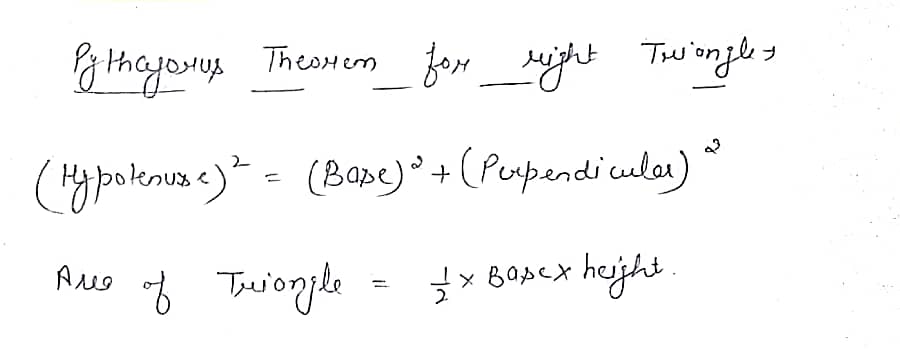 Pythagorus Theorem for right Triangles
(Hypotenuse)² = (Base)² + (Perpendicular)²
Area of Triangle = 1/2 × Base × height.